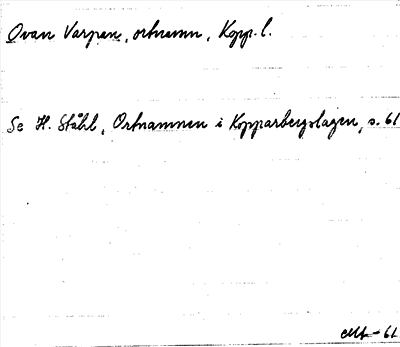 Ovan Varpan, ortnamn, Kopp. l.
Se H. Ståhl, Ortnamnen i Kopparbergslagen, s. 61
-61